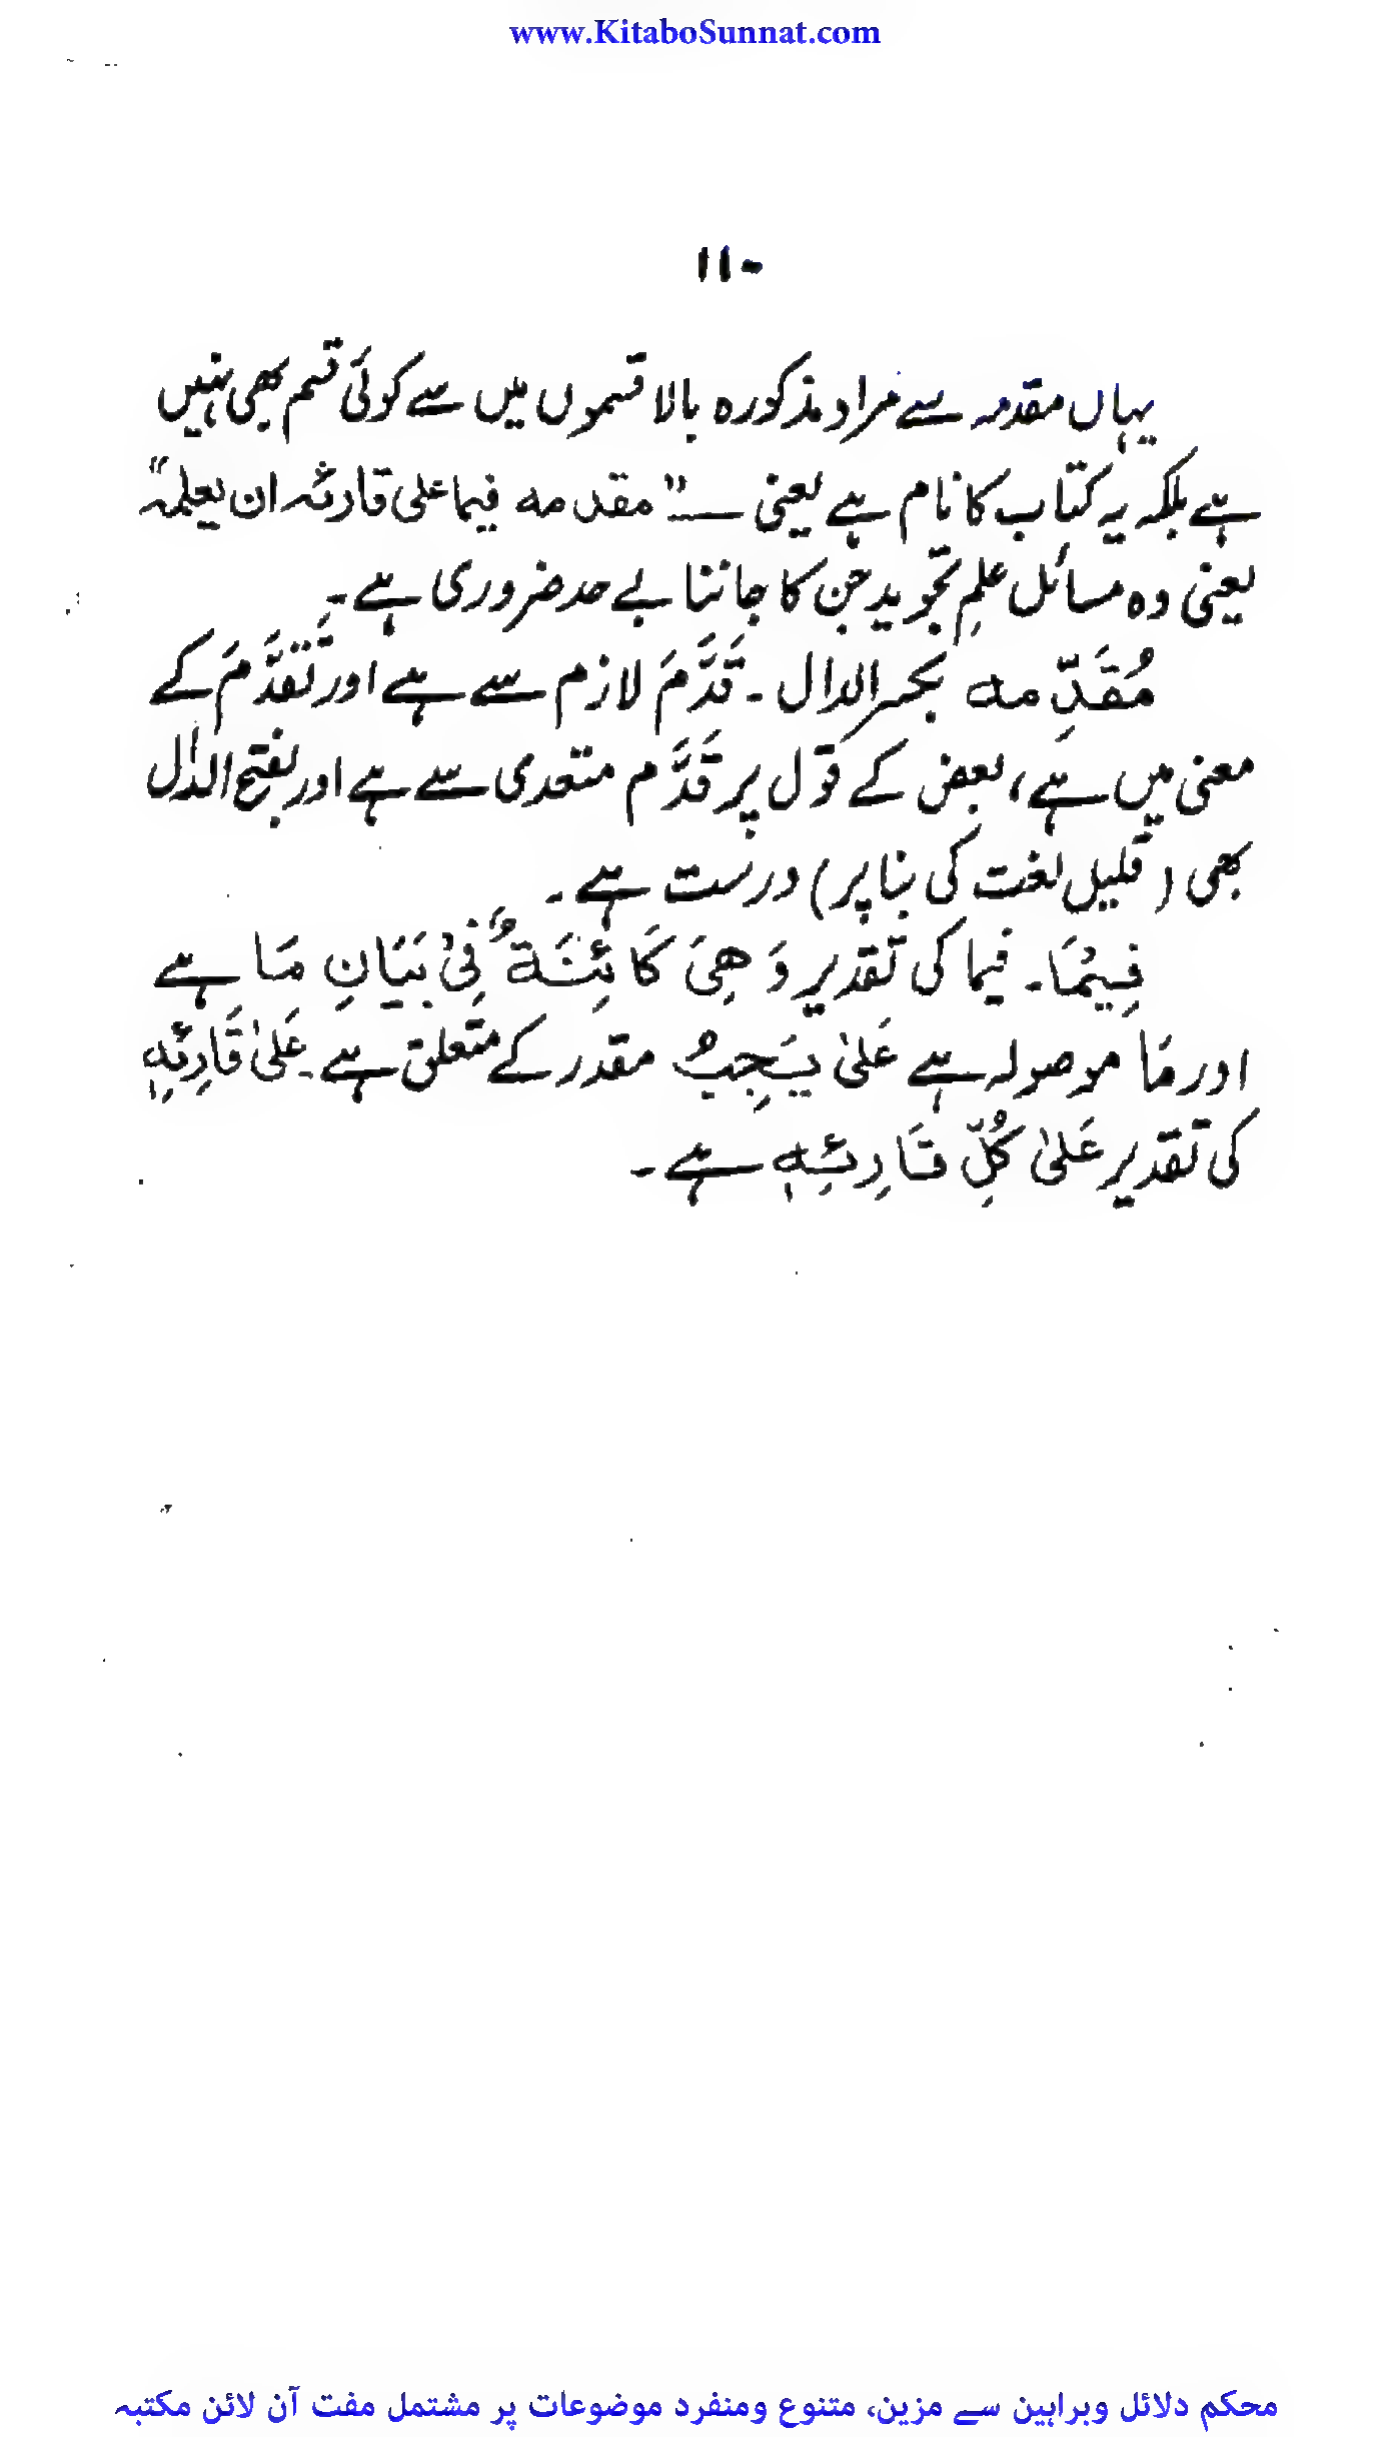 www.KitaboSunnat.com
۱۱۰
یہاں مقدمہ سے مراد مذکورہ بالا قسموں میں سے کوئی قسم بھی نہیں
ہے بلکہ یہ کتاب کا نام ہے یعنی ـــ "مقدمه فیما علی قارئہ ان یعلمہ"
یعنی وہ مسائل علمِ تجوید جن کا جاننا بے حد ضروری ہے۔
مُقَدِّمه بکسر الدال ۔ قَدَّمَ لازم سے ہے اور تَقَدَّمَ کے
معنی میں ہے، بعض کے قول پر قَدَّم متعدی سے ہے اور بفتح الدال
بھی (قلیل لغت کی بنا پر) درست ہے ۔
فِیْمَا۔ فیما کی تقدیر وَ هِیَ کَائِنَةٌ فِیْ بَیَانِ مَا ہے
اور مَا موصولہ ہے عَلیٰ یَجِبُ مقدر کے متعلق ہے عَلیٰ قَارِئِهٖ
کی تقدیر عَلیٰ کُلِّ قَارِئِهٖ ہے ۔
محکم دلائل وبراہین سے مزین، متنوع ومنفرد موضوعات پر مشتمل مفت آن لائن مکتبہ